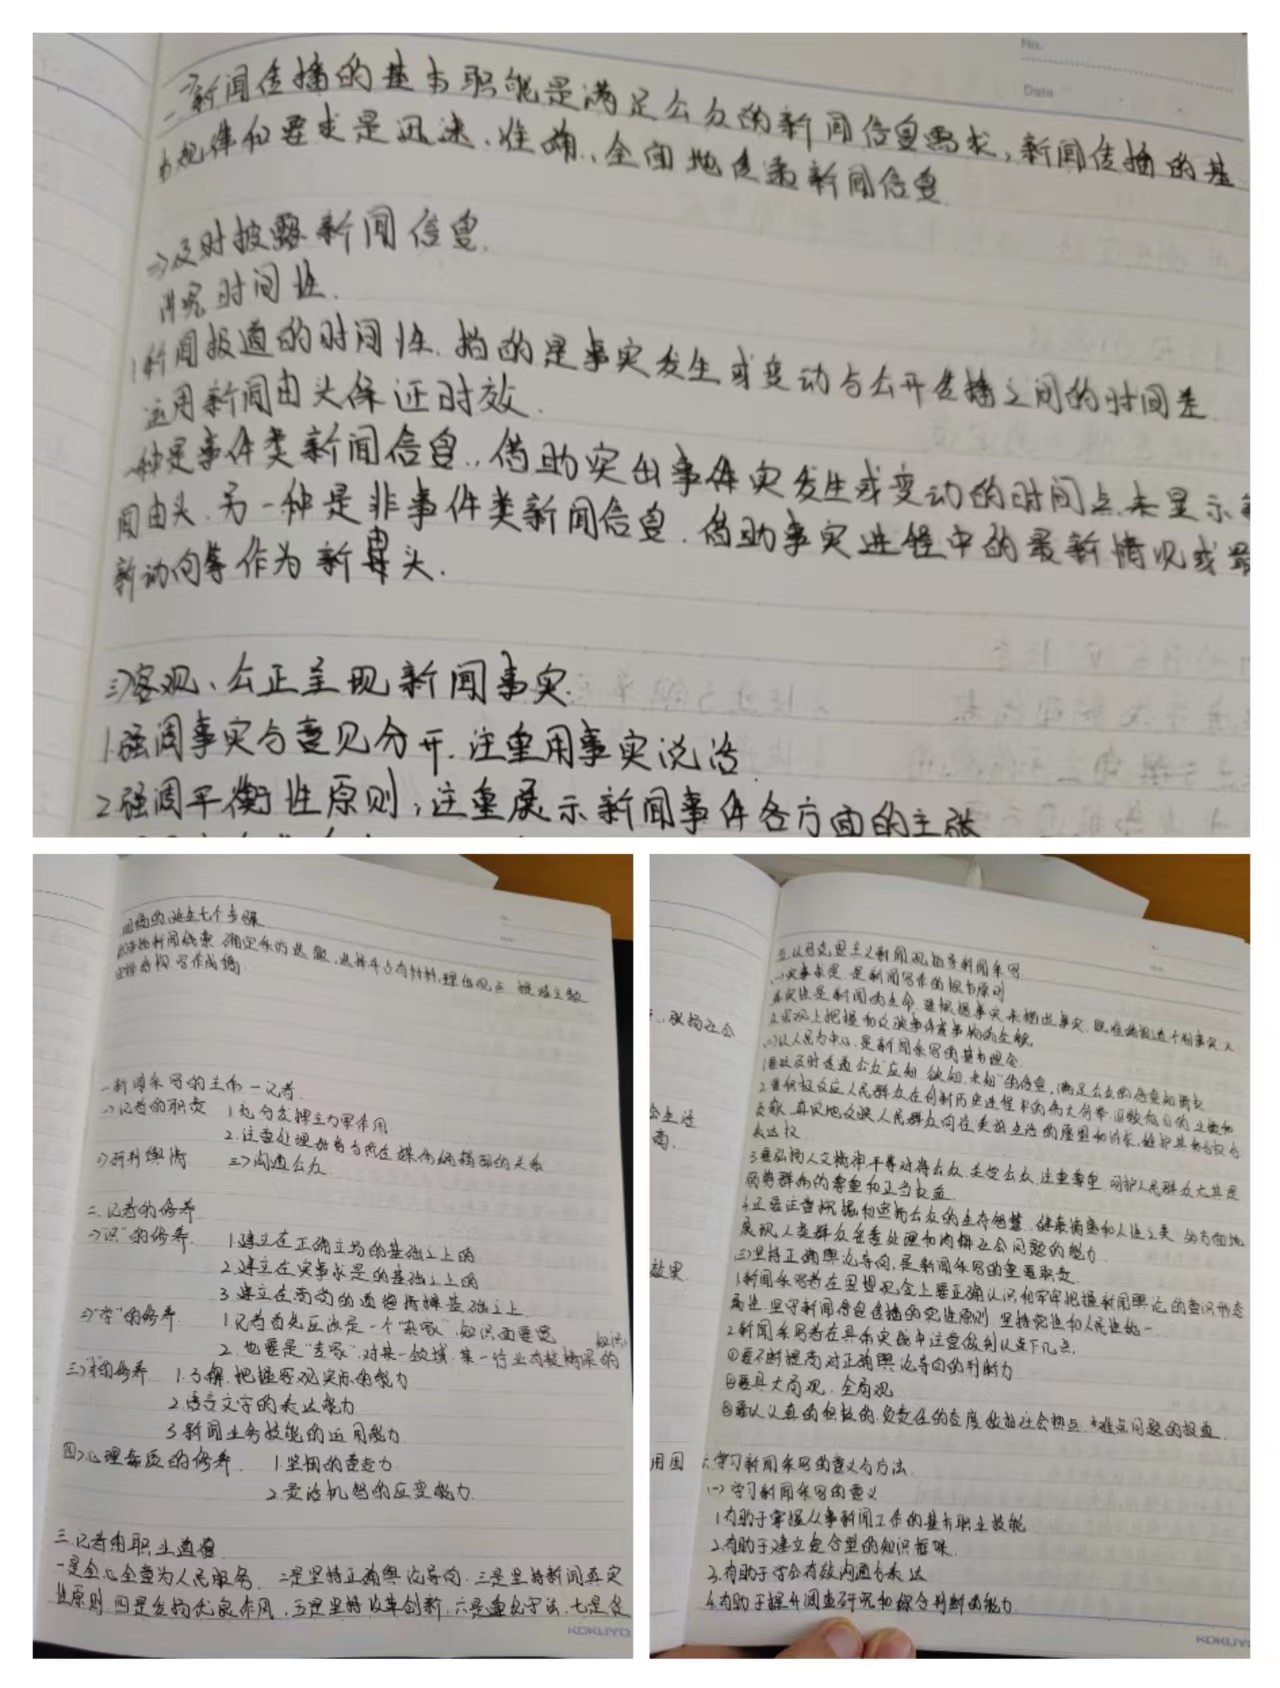 No.
Date
一新闻传播的基本职能是满足公众的新闻信息需求,新闻传播的基
本规律和要求是迅速、准确、全面地传递新闻信息
二)及时披露新闻信息.
讲究时间性.
1新闻报道的时间性.指的是事实发生或变动与公开传播之间的时间差.
运用新闻由头保证时效.
一种是事件类新闻信息,借助突出事件突发生或变动的时间点来显示
闻由头.另一种是非事件类新闻信息.借助事实进程中的最新情况或最
新动向等作为新由头.
三)客观、公正呈现新闻事实.
1.强调事实与意见分开.注重用事实说话.
2强调平衡性原则,注重展示新闻事件各方面的主张
闻稿的诞生七个步骤
新闻线索 确定采访选题 选择并占有材料 提炼主题
写作成稿
一新闻采写的主体一记者.
一)记者的职责 1.充分发挥主力军作用
2.注意处理好自身与所在媒体编辑部的关系
二)研判舆情 三)沟通公众
二.记者的修养
一)"识"的修养. 1.建立在正确立场的基础之上的
2.建立在实事求是的基础之上的
3.建立在高尚的道德情操基础之上
二)"学"的修养 1.记者首先应该是一个"杂家".知识面要宽
2.也要是"专家".对某一领域.某一行业有较精深的知识
三)才的修养 1.了解.把握客观实际的能力
2.语言文字的表达能力
3.新闻业务技能的运用能力
四)心理素质的修养. 1.坚韧的意志力
2.灵活机智的应变能力.
三.记者的职业道德
一是全心全意为人民服务. 二是坚持正确舆论导向.三是坚持新闻真实
性原则 四是发扬优良作风.五是坚持改革创新.六是遵纪守法.七是促
KOKUYO
五.以马克思主义新闻观指导新闻采写
(一)实事求是.是新闻写作的根本原则
真实性是新闻的生命.要根据事实来描述事实.既准确报道个别事实.又
从宏观上把握和反映事件或事物的全貌.
(二)以人民为中心.是新闻采写的基本理念.
1要及时传递公众"应知.欲知.未知"的信息,满足公众的信息知情权
2.要积极反应人民群众在创新历史进程中的伟大创举.
贡献.真实地反映人民群众向往美好生活的愿望和诉求,维护其参与权与
表达权
3要弘扬人文精神.平等对待公众.关爱公众.注重尊重.呵护人民群众尤其是
弱势群体的尊重和正当权益
4.还要注意挖掘和宣扬公众的生存智慧.健康情趣和人性之美.
展现人类群众在妥处理和消解社会问题的能力.
(三)坚持正确舆论导向,是新闻采写的重要职责.
1.新闻采写者在思想观念上要正确认识和牢牢把握新闻舆论的意识形态
属性.坚守新闻信息传播的党性原则.坚持党性和人民性统一.
2.新闻采写者在具体实践中注意做到以下几点.
①要不断提高对正确舆论导向的判断力
②要具大局观.全局观
③要以认真的积极的.负责任的态度做好社会热点.难点问题的报道.
六.学习新闻采写的意义与方法.
(一)学习新闻采写的意义
1有助于掌握从事新闻工作的基本职业技能
2.有助于建立复合型的知识框架.
3.有助于学会有效沟通与表达
4.有助于提升调查研究和综合判断的能力.
KOKUYO